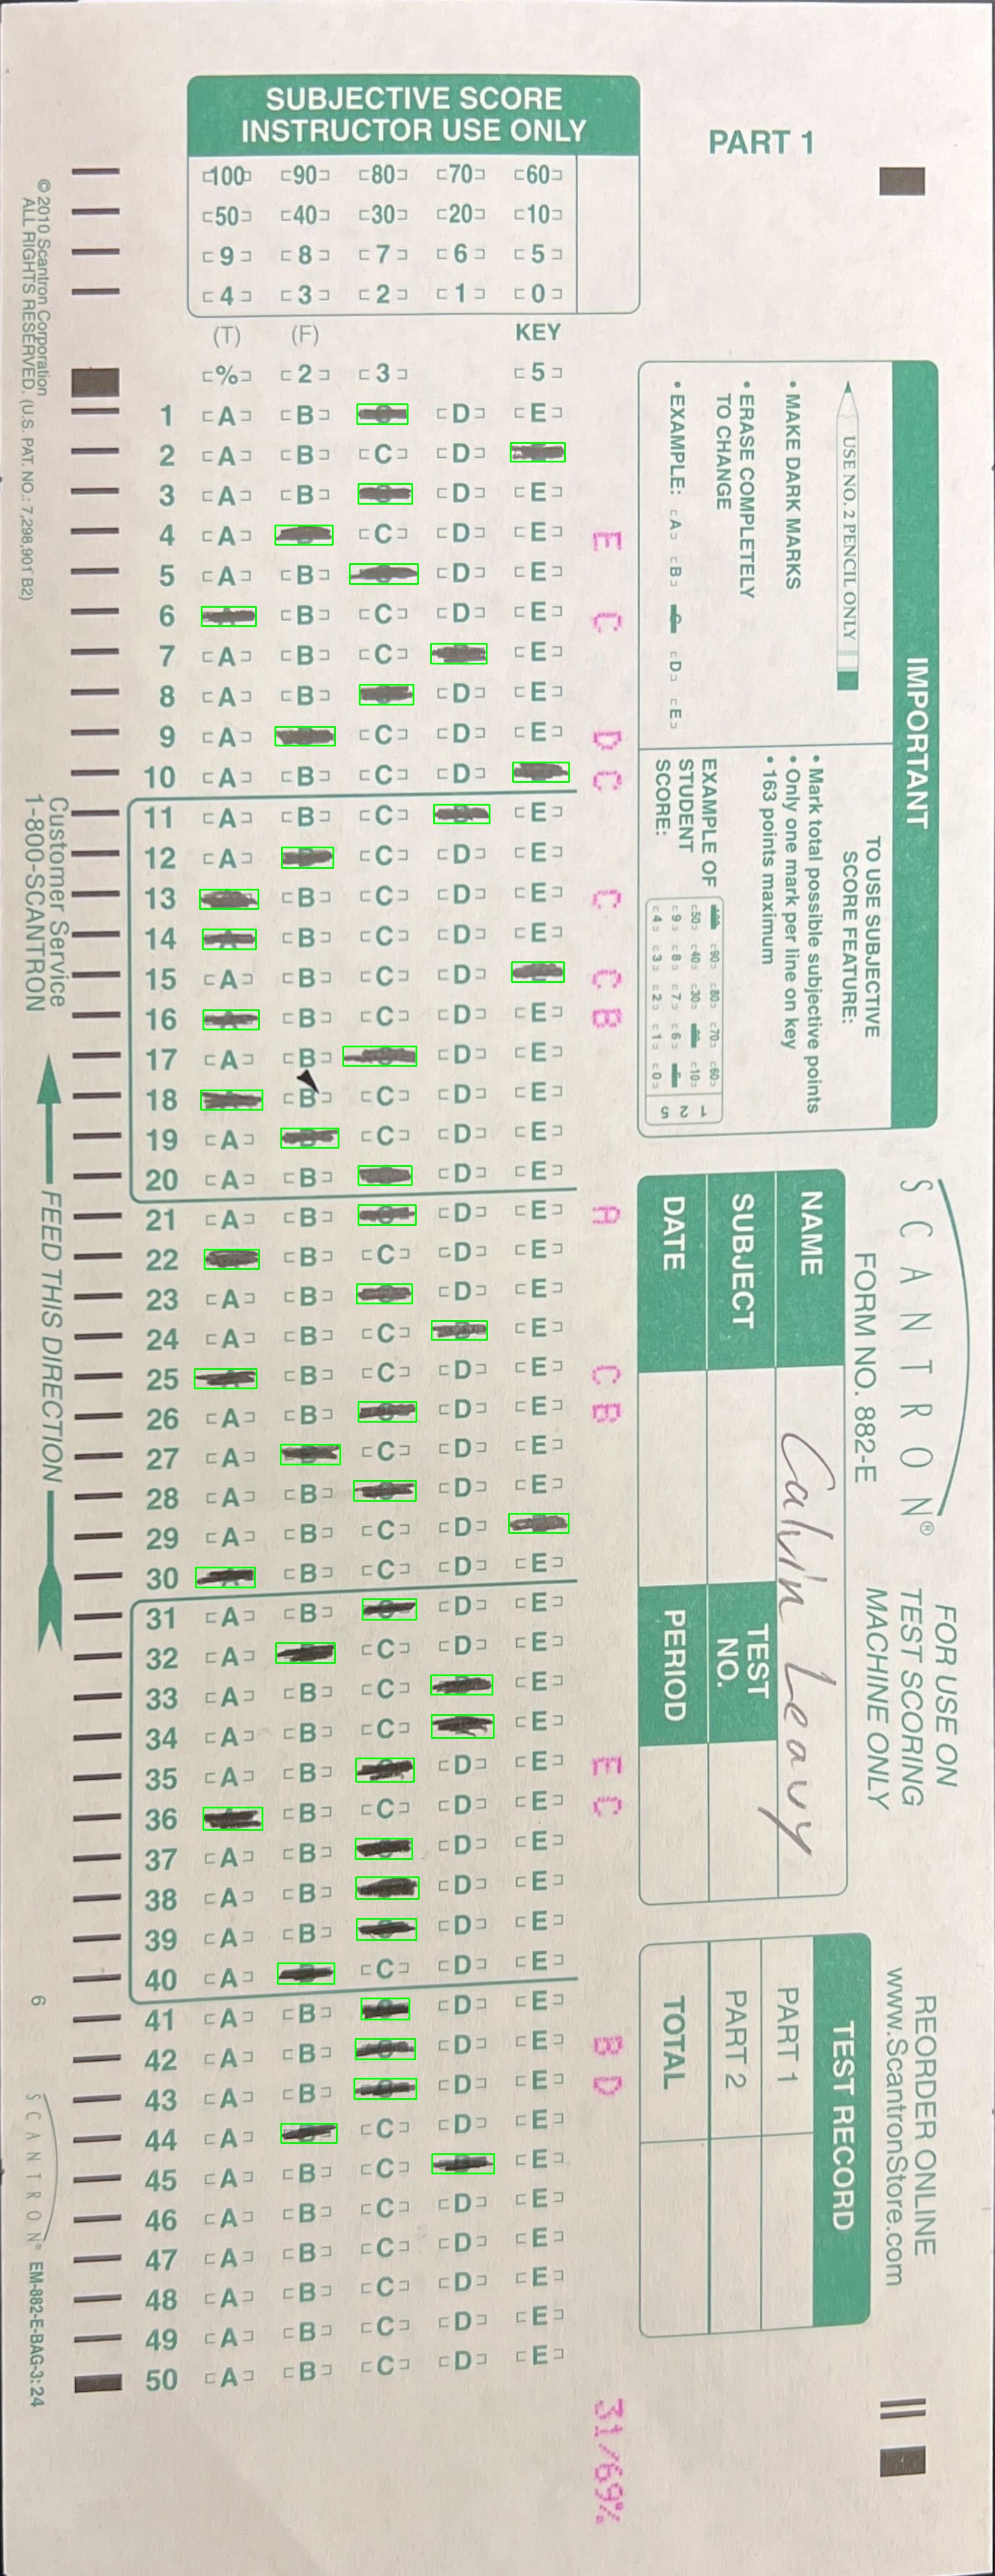 SUBJECTIVE SCORE
INSTRUCTOR USE ONLY
100 90 80 70 60
50 40 30 20 10
9 8 7 6 5
4 3 2 1 0
(T) (F) KEY
% 2 3 5
1 A B C D E
2 A B C D E
3 A B C D E
4 A B C D E E
5 A B C D E
6 A B C D E C
7 A B C D E
8 A B C D E
9 A B C D E D
10 A B C D E C
11 A B C D E
12 A B C D E
13 A B C D E C
14 A B C D E
15 A B C D E C
16 A B C D E B
17 A B C D E
18 A B C D E
19 A B C D E
20 A B C D E
21 A B C D E A
22 A B C D E
23 A B C D E
24 A B C D E
25 A B C D E C
26 A B C D E B
27 A B C D E
28 A B C D E
29 A B C D E
30 A B C D E
31 A B C D E
32 A B C D E
33 A B C D E
34 A B C D E
35 A B C D E E
36 A B C D E C
37 A B C D E
38 A B C D E
39 A B C D E
40 A B C D E
41 A B C D E
42 A B C D E B
43 A B C D E D
44 A B C D E
45 A B C D E
46 A B C D E
47 A B C D E
48 A B C D E
49 A B C D E
50 A B C D E
31/69%
PART 1
IMPORTANT
USE NO. 2 PENCIL ONLY
• MAKE DARK MARKS
• ERASE COMPLETELY
TO CHANGE
• EXAMPLE: A B C D E
TO USE SUBJECTIVE
SCORE FEATURE:
• Mark total possible subjective points
• Only one mark per line on key
• 163 points maximum
EXAMPLE OF
STUDENT
SCORE:
100 90 80 70 60
50 40 30 20 10
9 8 7 6 5
4 3 2 1 0
1 2 5
SCANTRON®
FORM NO. 882-E
FOR USE ON
TEST SCORING
MACHINE ONLY
REORDER ONLINE
www.ScantronStore.com
NAME Calvin Leavy
SUBJECT
TEST
NO.
DATE
PERIOD
TEST RECORD
PART 1
PART 2
TOTAL
Customer Service
1-800-SCANTRON
FEED THIS DIRECTION
© 2010 Scantron Corporation
ALL RIGHTS RESERVED. (U.S. PAT. NO.: 7,298,901 B2)
6
SCANTRON® EM-882-E-BAG-3:24